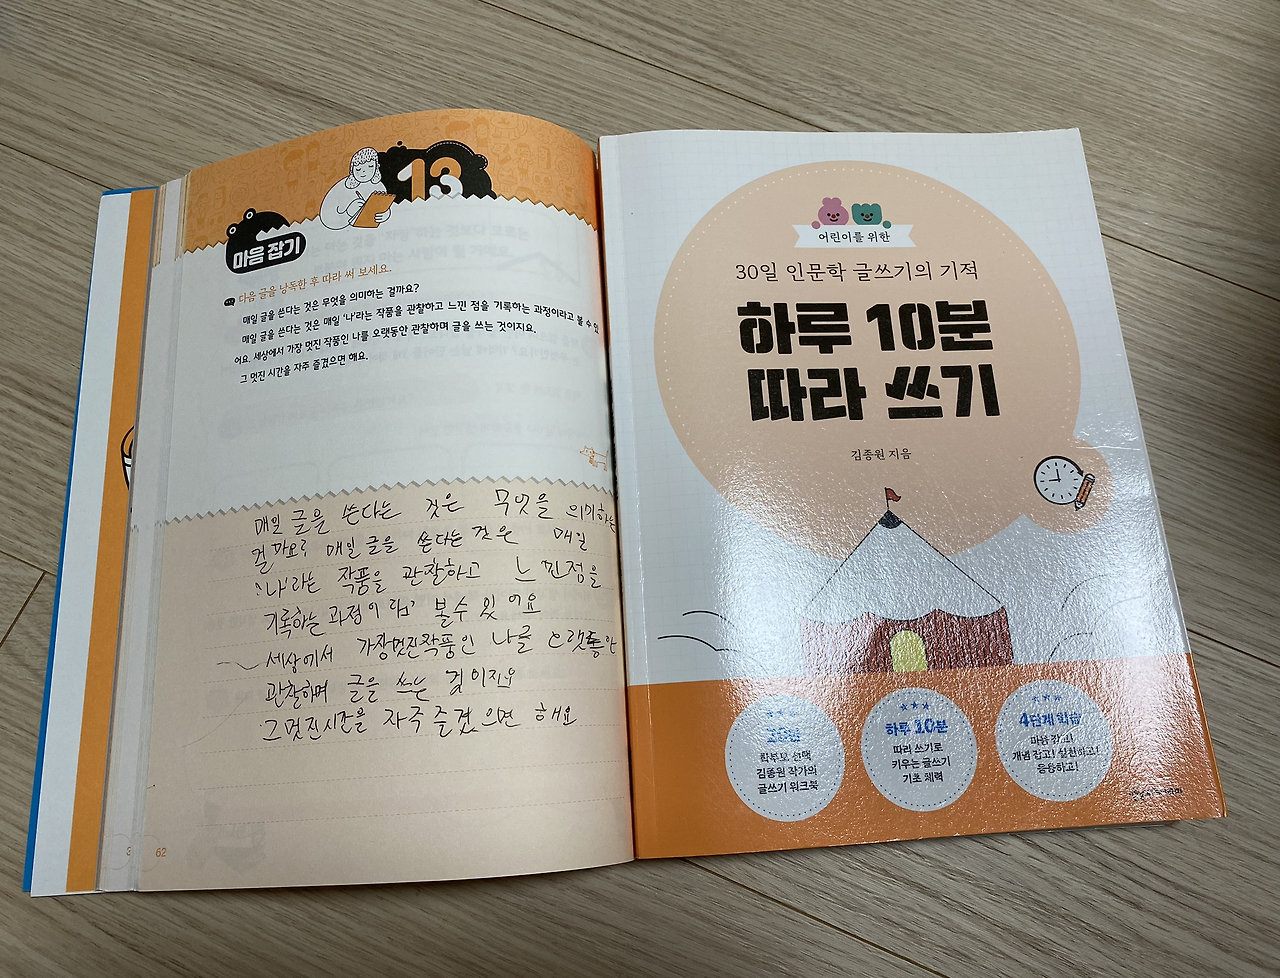 13
마음 잡기
다음 글을 낭독한 후 따라 써 보세요.
매일 글을 쓴다는 것은 무엇을 의미하는 걸까요?
매일 글을 쓴다는 것은 매일 '나'라는 작품을 관찰하고 느낀 점을 기록하는 과정이라고 볼 수 있
어요. 세상에서 가장 멋진 작품인 나를 오랫동안 관찰하며 글을 쓰는 것이지요.
그 멋진 시간을 자주 즐겼으면 해요.
매일 글을 쓴다는 것은 무엇을 의미하는
걸까요? 매일 글을 쓴다는 것은 매일
'나'라는 작품을 관찰하고 느낀점을
기록하는 과정이 볼수 있어요
세상에서 가장멋진작품인 나를
관찰하며 글을 쓰는 것이지요
그멋진시간을 자주 즐겼으면 해요
62
어린이를 위한
30일 인문학 글쓰기의 기적
하루 10분
따라 쓰기
김종원 지음
학부모 선택
김종원 작가의
글쓰기 워크북
하루 10분
따라 쓰기로
키우는 글쓰기
기초 체력
4단계 학습
마음 잡고!
개념 잡고! 실천하고!
응용하고!